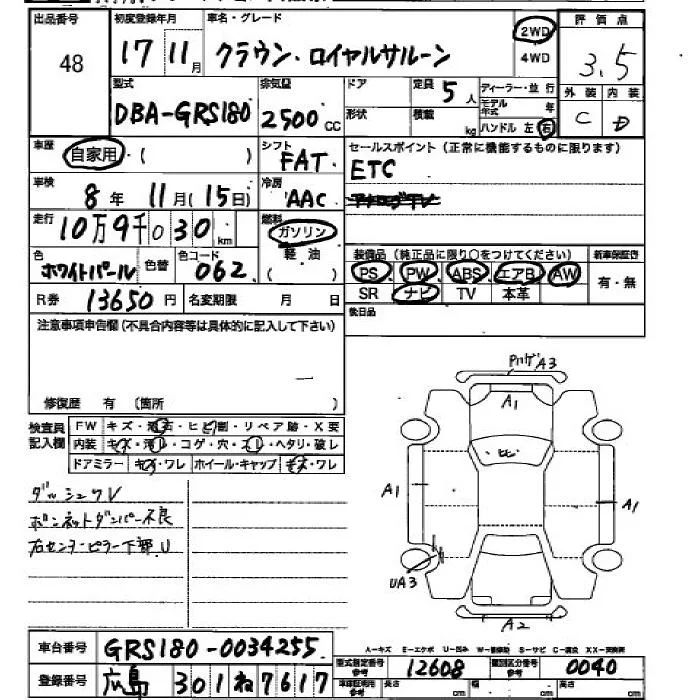 出品番号 初度登録年月 車名・グレード 2WD 評価点
48 17 11月 クラウン・ロイヤルサルーン 4WD 3.5
型式 排気量 ドア 定員 5人 ディーラー・並行 外装 内装
DBA-GRS180 2500cc 形状 積載 kg モデル年式 年 C D
ハンドル 左 右
車歴 自家用・( ) シフト FAT セールスポイント(正常に機能するものに限ります)
車検 8年 11月(15日) 冷房 AAC ETC
走行 10万9千030km 燃料 ガソリン アナログTV
色 ホワイトパール 色替 色コード 062 軽油 ( ) 装備品(純正品に限り○をつけてください) 新車保証書
PS PW ABS エアB AW 有・無
R券 13650円 名変期限 月 日 SR ナビ TV 本革
注意事項申告欄(不具合内容等は具体的に記入して下さい) 後日品
修復歴 有 (箇所 )
検査員記入欄 FW キズ・
内装 コゲ・穴・スレ・ヘタリ・破レ
ドアミラー キズ・ワレ ホイール・キャップ キズ・ワレ
A3
A1
ヒビ
A1
A1
UA3
A2
ダッシュワレ
ボンネットダンパー不良
右センターピラー下部U
A-キズ E-エクボ U-凹み
車台番号 GRS180-0034255 型式指定番号参考 12608 類別区分番号参考 0040
登録番号 広島 301 ね 7617 長さ cm 幅 cm 高さ cm